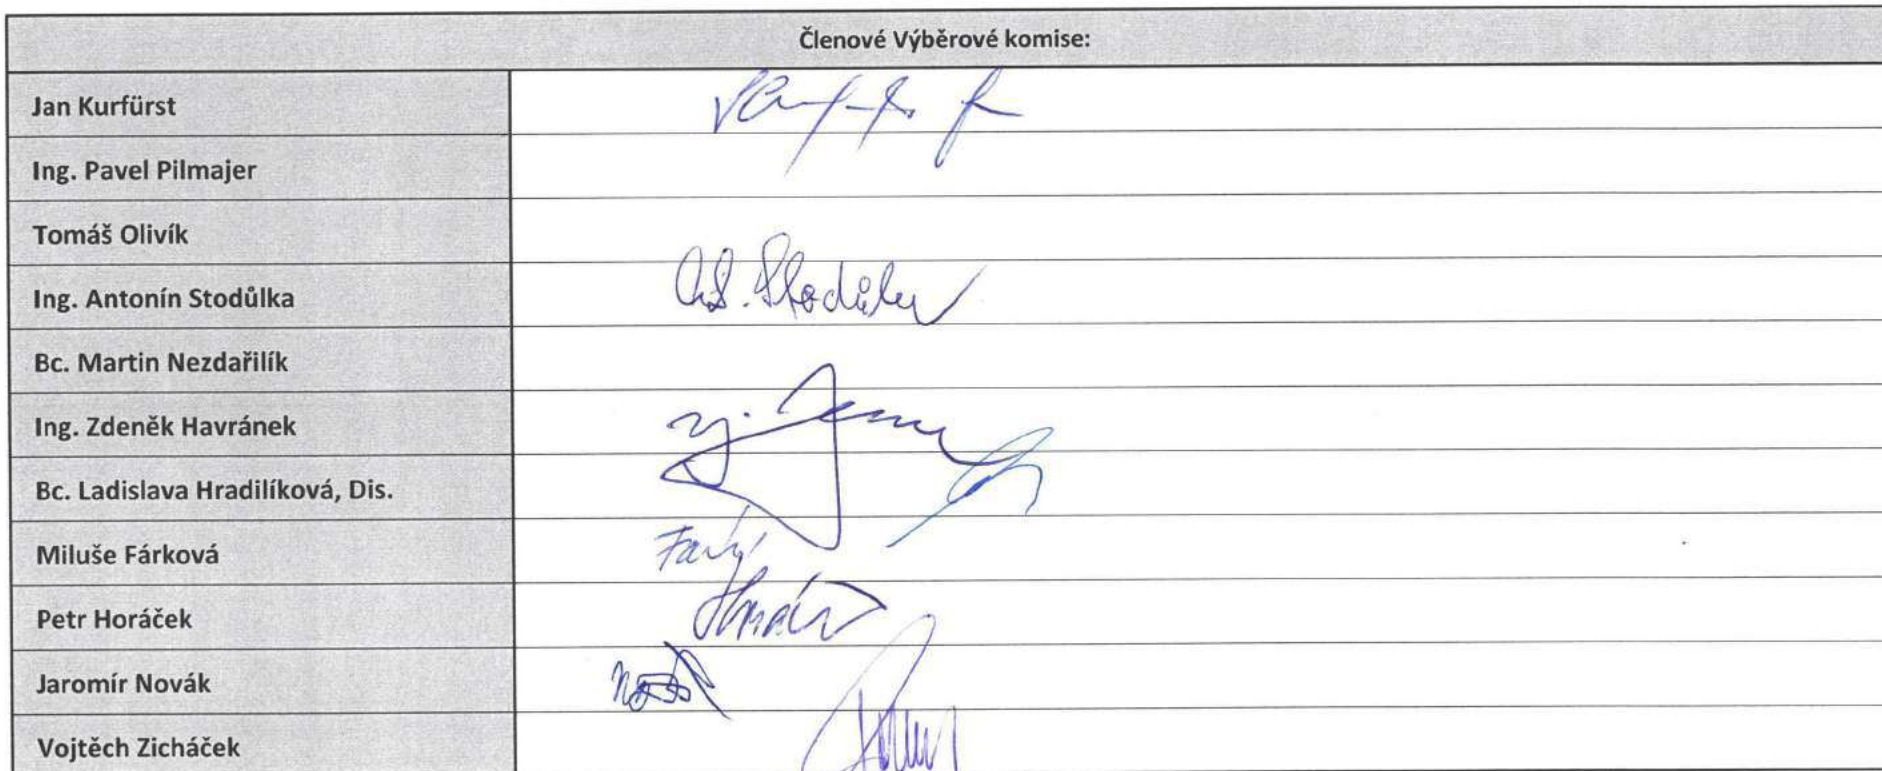 Členové Výběrové komise:
Jan Kurfürst
Ing. Pavel Pilmajer
Tomáš Olivík
Ing. Antonín Stodůlka
Bc. Martin Nezdařilík
Ing. Zdeněk Havránek
Bc. Ladislava Hradilíková, Dis.
Miluše Fárková
Petr Horáček
Jaromír Novák
Vojtěch Zicháček